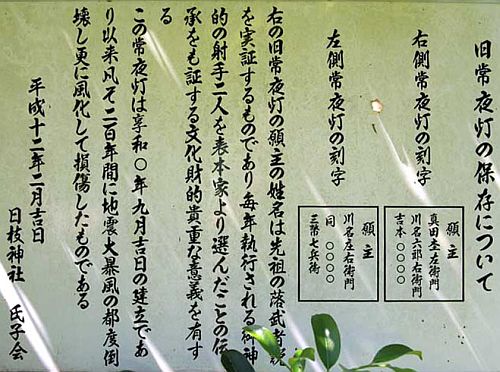 旧常夜灯の保存について
右側常夜灯の刻字
願主
真田杢左衛門
川名六郎右衛門
吉本〇〇〇〇
左側常夜灯の刻字
願主
川名庄右衛門
同〇〇〇〇
三幣七兵衛
右の旧常夜灯の願主の姓名は先祖の落武者説
を実証するものであり毎年執行される御神
的の射手二人を表本家より選んだことの伝
承をも証する文化財的貴重な意義を有す
る
この常夜灯は享和〇年九月吉日の建立であ
り以来凡そ二百年間に地震大暴風の都度倒
壊し更に風化して損傷したものである
平成十二年二月吉日
日枝神社 氏子会